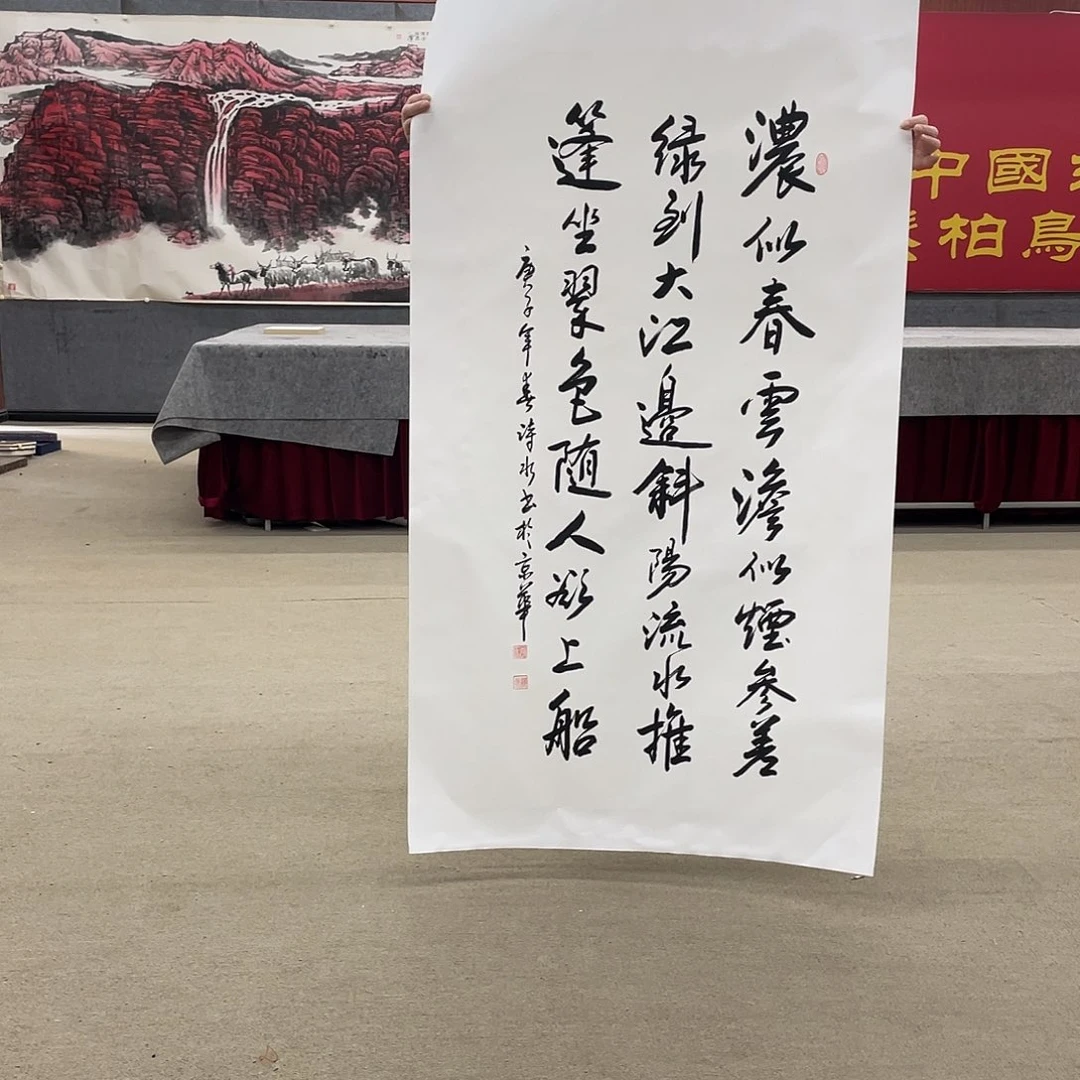 濃似春雲澹似煙參差
绿到大江邊斜陽流水推
篷坐翠色隨人欲上船
庚子年春诗水书於京華
中國
柏鳥